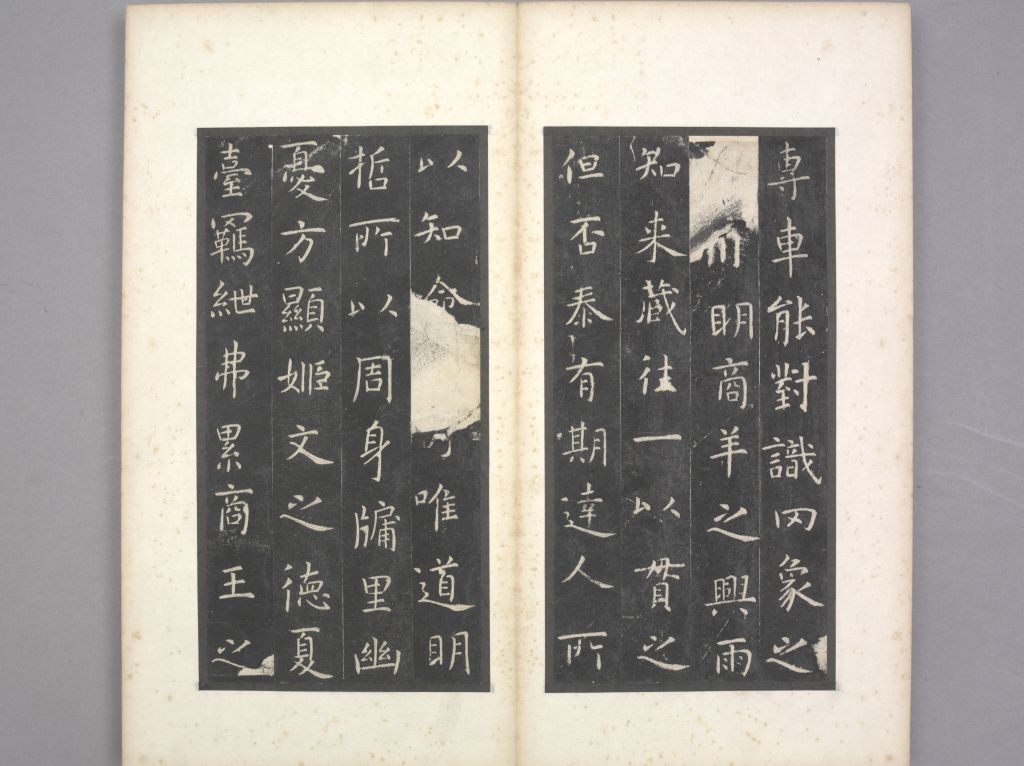 専車能對識罔象之
而明商羊之興雨
知来藏往一以貫之
但否泰有期達人所
以知命
唯道明
哲所以周身牖里幽
憂方顯姬文之德夏
臺羈紲弗累商王之